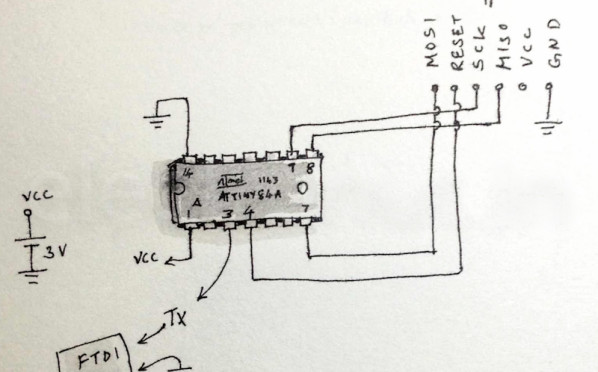 MOSI
RESET
SCK
MISO
VCC
GND
14
9
8
Atmel 1143
ATTINY84A
1
3
4
7
VCC
3V
VCC
TX
FTDI